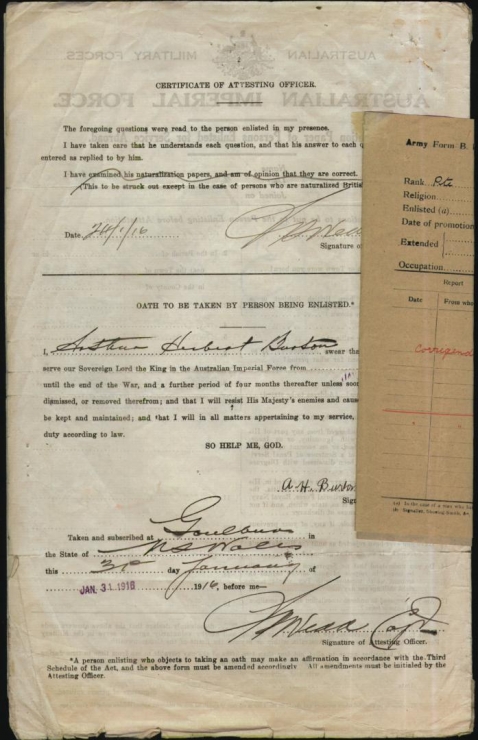 CERTIFICATE OF ATTESTING OFFICER.
The foregoing questions were read to the person enlisted in my presence.
I have taken care that he understands each question, and that his answer to each q
entered as replied to by him.
I have examined his naturalization papers, and am of opinion that they are correct.
(This to be struck out except in the case of persons who are naturalized Britis
Date 24/1/16
Signature of
OATH TO BE TAKEN BY PERSON BEING ENLISTED.*
I, Arthur Herbert Burton swear tha
serve our Sovereign Lord the King in the Australian Imperial Force from
until the end of the War, and a further period of four months thereafter unless soon
dismissed, or removed therefrom; and that I will resist His Majesty's enemies and cause
be kept and maintained; and that I will in all matters appertaining to my service,
duty according to law.
SO HELP ME, GOD.
A. H. Burton
Sign
Taken and subscribed at Goulburn in
the State of N S Wales
this 31st day January of
JAN 31 1916 1916, before me—
Capt
Signature of Attesting Officer.
*A person enlisting who objects to taking an oath may make an affirmation in accordance with the Third
Schedule of the Act, and the above form must be amended accordingly. All amendments must be initialed by the
Attesting Officer.
Army Form B.
Rank Pte
Religion
Enlisted (a)
Date of promotion
Extended
Occupation
Report
Date From who